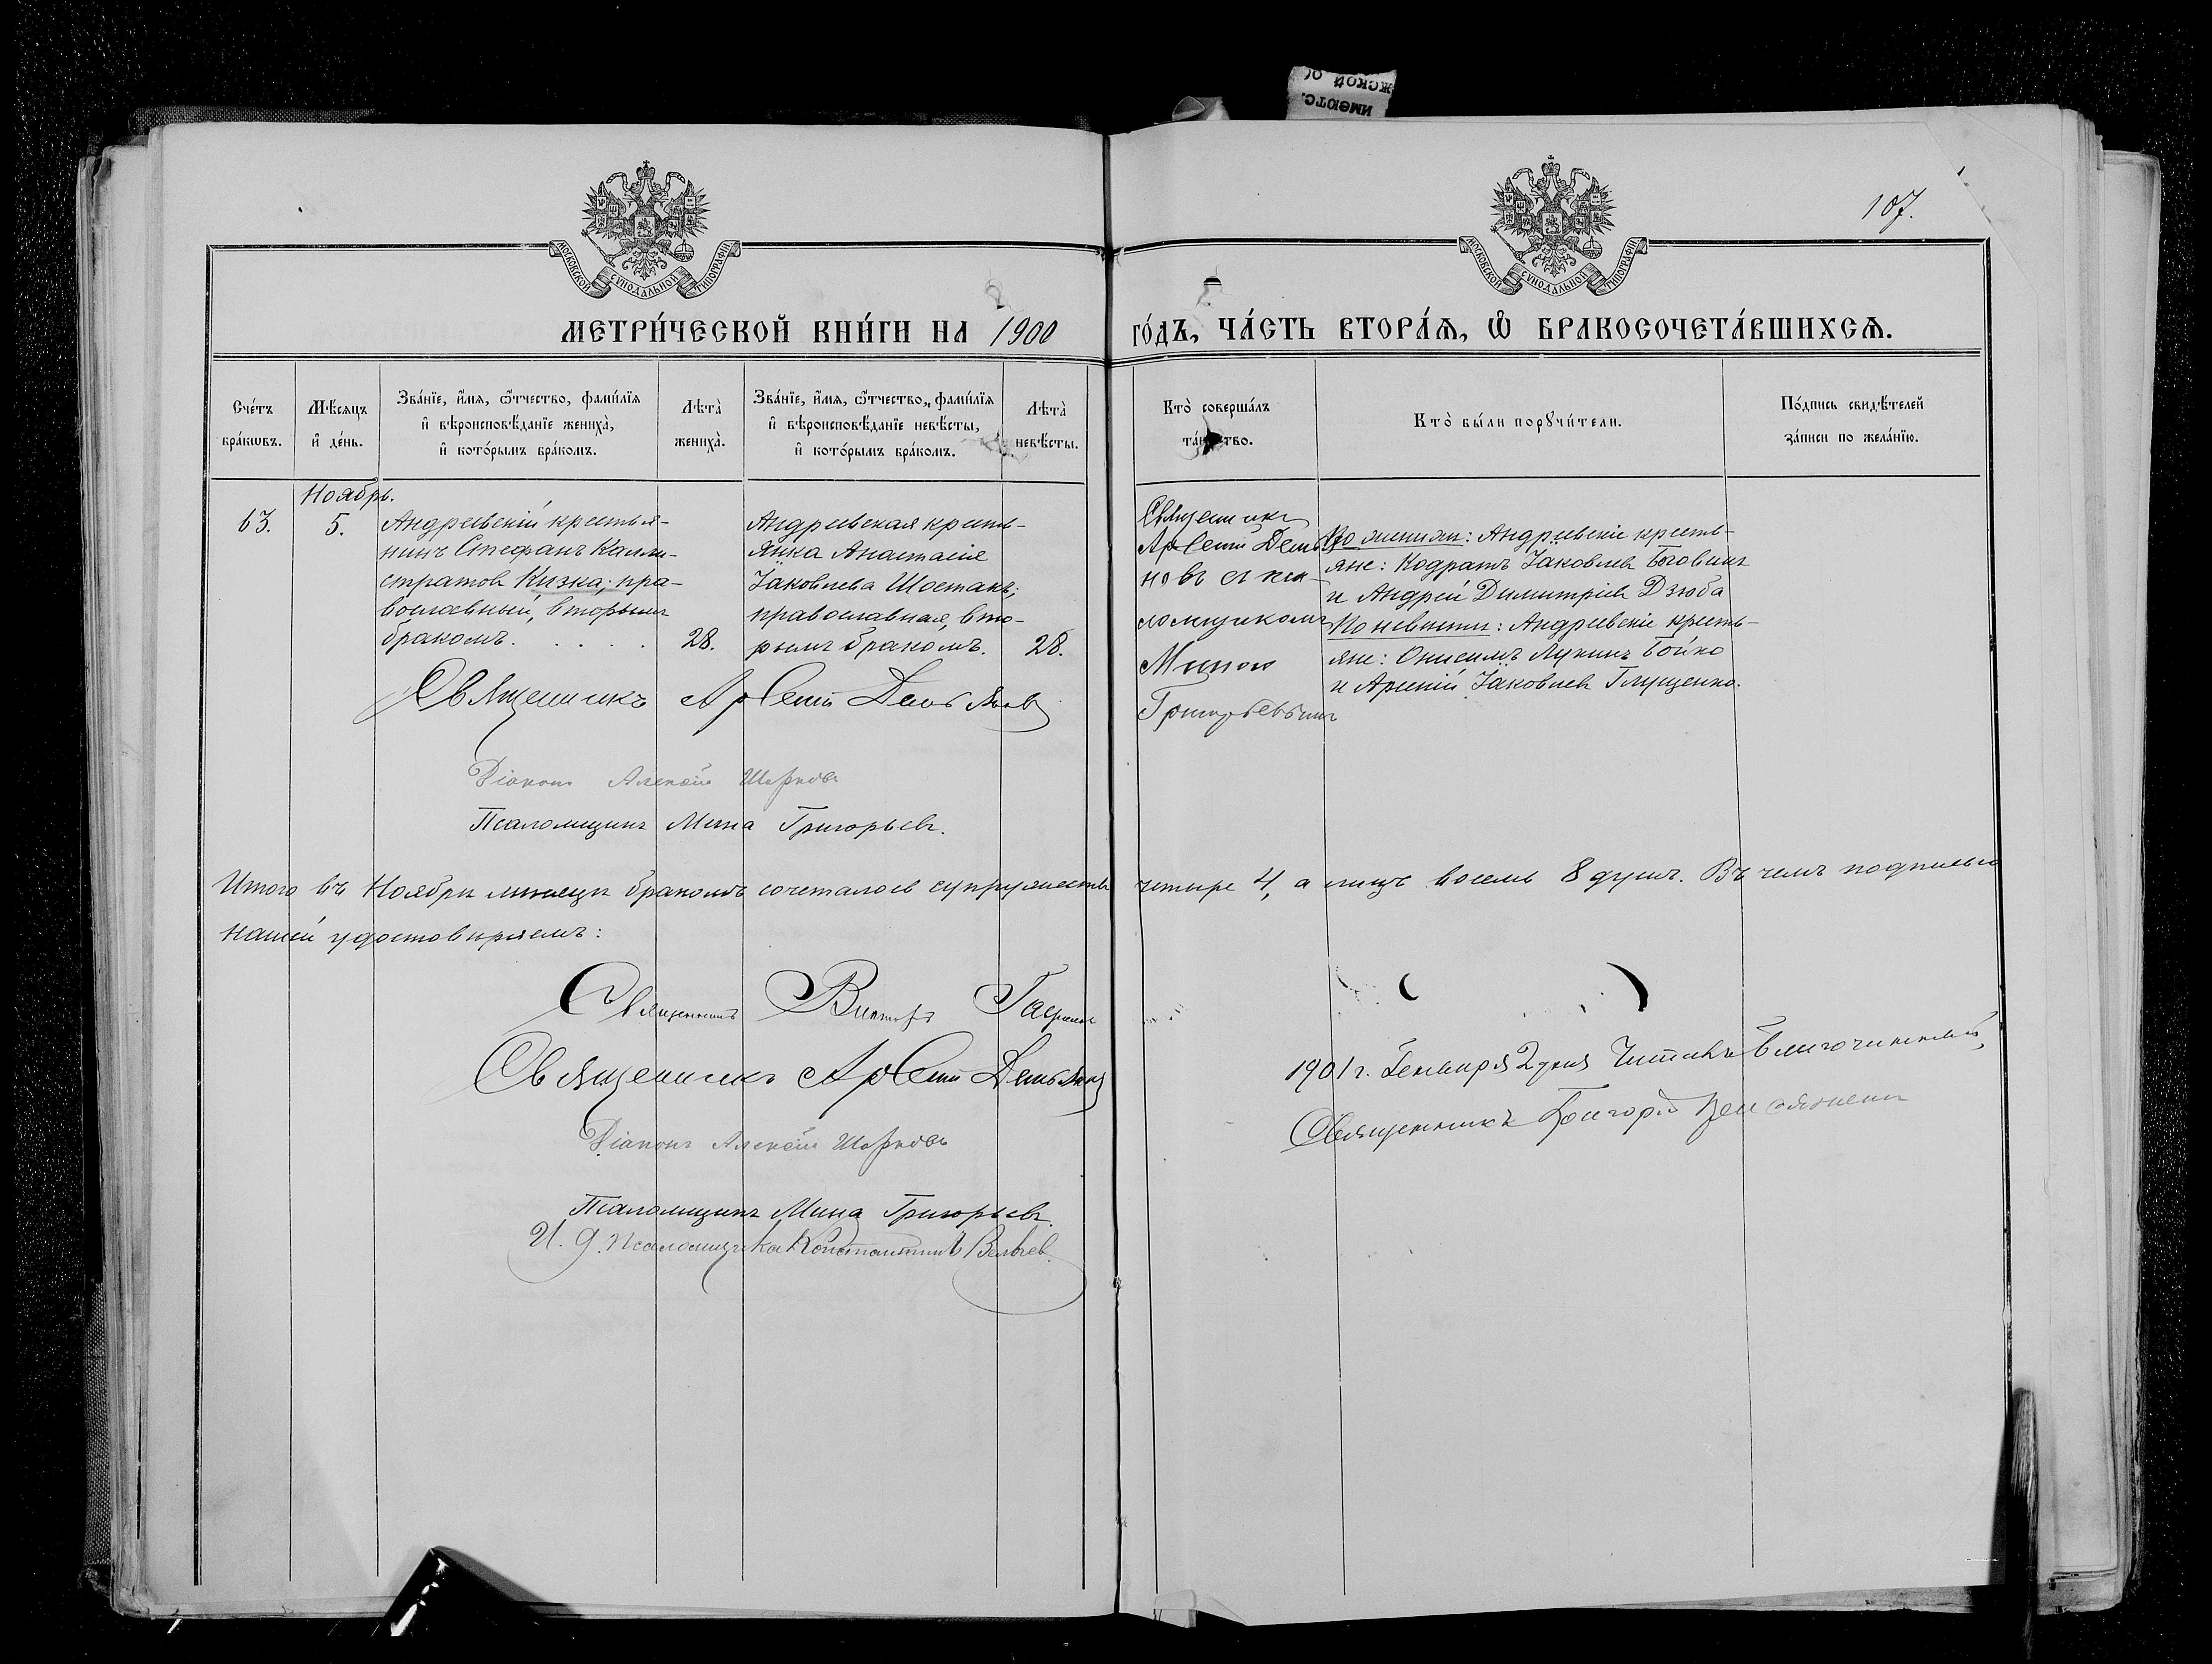 107.
МОСКОВСКОЙ СУНОДАЛЬНОЙ ТИПОГРАФІИ
МОСКОВСКОЙ СУНОДАЛЬНОЙ ТИПОГРАФІИ
МЕТРИ́ЧЕСКОЙ КНИ́ГИ НА 1900 ГО́ДЪ, ЧА́СТЬ ВТОРА́Ѧ, Ѽ БРАКОСОЧЕТА́ВШИХСѦ.
Сче́тъ бра́кѡвъ.
Мѣ́сяцъ и҆ де́нь.
Зва́нїе, и҆́мя, ѻ҆́тчество, фами́лїя
и҆ вѣроисповѣ́данїе жениха̀,
и҆ кото́рымъ бра́комъ.
Лѣта̀ жениха̀.
Зва́нїе, и҆́мя, ѻ҆́тчество, фами́лїя
и҆ вѣроисповѣ́данїе невѣ́сты,
и҆ кото́рымъ бра́комъ.
Лѣта̀ невѣ́сты.
Кто̀ соверша́лъ
та́инство.
Кто̀ бы́ли порꙋчи́тели.
По́дпись свидѣ́телей
за́писи по жела́нїю.
Ноябрь.
63.
5.
Андреевскій крестья-
нинъ Стефанъ Калли-
стратовъ Кизка; пра-
вославный, вторымъ
бракомъ. . . . .
28.
Андреевская кресть-
янка Анастасія
Іаковлева Шостакъ;
православная, вто-
рымъ бракомъ.
28.
Священникъ
Арсеній Демья
новъ съ пса-
ломщикомъ
Миною
Григорьевымъ
По женихѣ: Андреевскіе кресть-
яне: Кодратъ Іаковлевъ Боговинъ
и Андрей Димитріевъ Дзюба
По невѣстѣ: Андреевскіе кресть-
яне: Онисимъ Лукинъ Бойко
и Арсеній Іаковлевъ Глущенко.
Священникъ Арсеній Демьянов
Діаконъ Алексѣй
Псаломщикъ Мина Григорьевъ.
Итого въ Ноябрѣ мѣсяцѣ бракомъ сочеталось супружествъ четыре 4, а лицъ восемь 8 душъ. Въ чемъ подписью
нашей удостовѣряемъ:
Священникъ Викторъ
Священникъ Арсеній Демьянов
Діаконъ Алексѣй
Псаломщикъ Мина Григорьевъ.
И. д. Псаломщика Константинъ
1901 г. Генваря 2 дня Читалъ Благочинный,
Священникъ Григорій